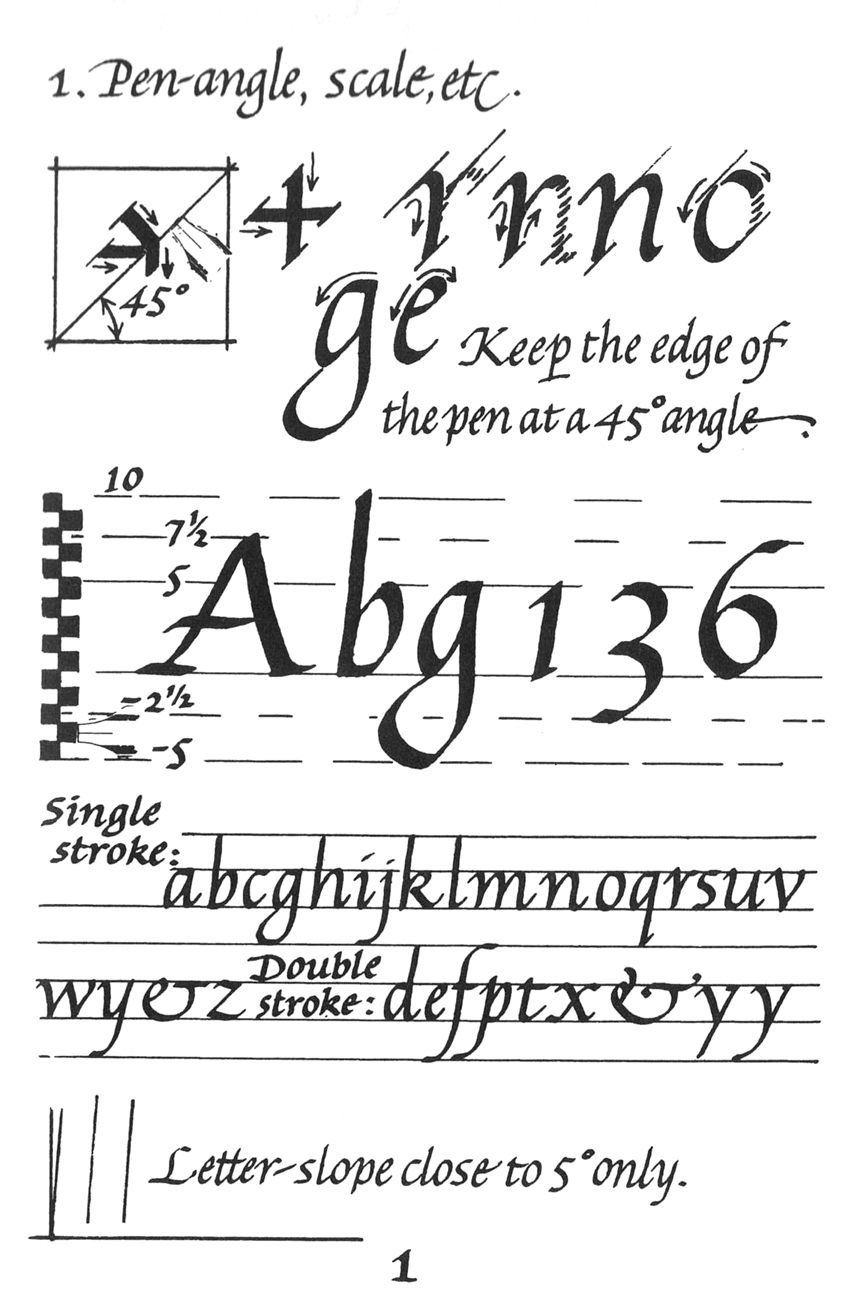 1. Pen-angle, scale, etc.
45°
r n n o
g e
Keep the edge of
the pen at a 45° angle.
10
7½
5
A b g 1 3 6
-2½
-5
Single
stroke:
abcghijklmnoqrsuv
wy&z
Double
stroke: defptx&yy
Letter-slope close to 5° only.
1